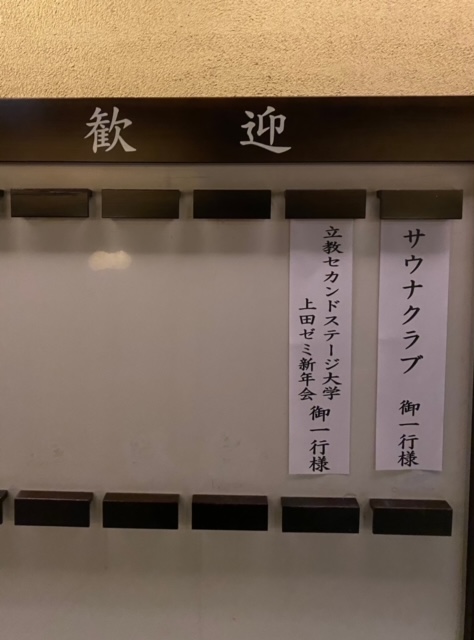 歓迎
サウナクラブ 御一行様
立教セカンドステージ大学
上田ゼミ新年会 御一行様